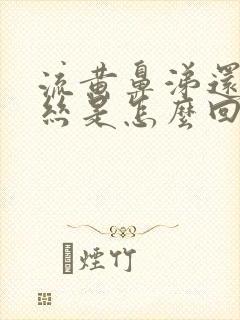 流黄鼻涕還
絲是怎麼回
煙竹